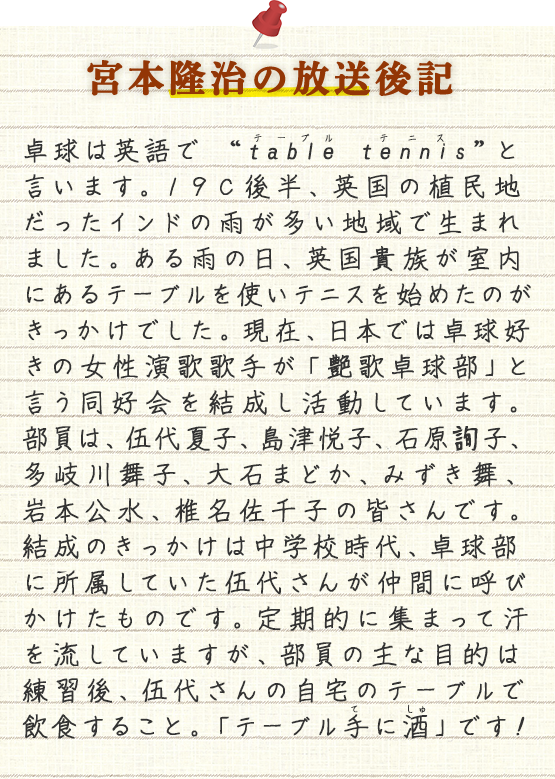 宮本隆治の放送後記
テーブル テニス
卓球は英語で “table tennis”と
言います。19C後半、英国の植民地
だったインドの雨が多い地域で生まれ
ました。ある雨の日、英国貴族が室内
にあるテーブルを使いテニスを始めたのが
きっかけでした。現在、日本では卓球好
きの女性演歌歌手が「艶歌卓球部」と
言う同好会を結成し活動しています。
部員は、伍代夏子、島津悦子、石原詢子、
多岐川舞子、大石まどか、みずき舞、
岩本公水、椎名佐千子の皆さんです。
結成のきっかけは中学校時代、卓球部
に所属していた伍代さんが仲間に呼び
かけたものです。定期的に集まって汗
を流していますが、部員の主な目的は
練習後、伍代さんの自宅のテーブルで
て しゅ
飲食すること。「テーブル手に酒」です!